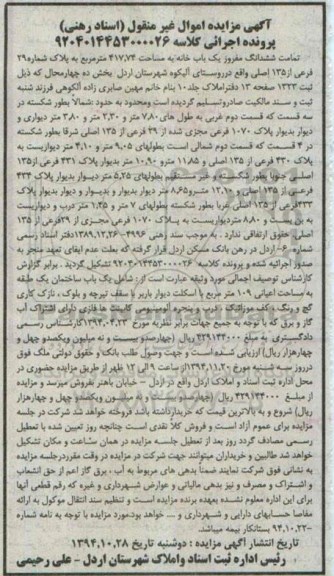 آگهی مزایده اموال غیر منقول (اسناد رهنی)
پرونده اجرائی کلاسه ۹۲۰۴۰۱۴۴۵۳۰۰۰۰۲۶
تمامت ششدانگ مفروز یک باب خانه به مساحت ۴۱۷,۷۴ مترمربع به پلاک شماره۲۹
فرعی از۱۳۵ اصلی واقع درروستای آلیکوه شهرستان اردل بخش ده چهارمحال که ذیل
ثبت ۱۳۲۳ صفحه ۱۳ دفتراملاک جلد۱۰ بنام خانم مهین صابری زاده آلکوهی فرزند شنبه
ثبت و سند مالکیت صادروتسلیم گردیده است ومحدود به حدود :شمالاً بطور شکسته در
سه قسمت که قسمت دوم غربی به طول های ۷,۸۰ متر و ۲,۳۰ متر و ۳,۸۰ متر دیواری و
دیوار بدیوار پلاک ۱۰۷۰ فرعی مجزی شده از ۲۹ فرعی از ۱۳۵ اصلی شرقا بطور شکسته
در ۴ قسمت که قسمت دوم شمالی است بطولهای ۹,۰۵ متر و ۴,۱۰ متر دیواریست به
پلاک ۴۳۰ فرعی از ۱۳۵ اصلی و ۱۱,۸۵ مترو ۱۰,۹۰ متر بدیوار پلاک ۴۳۱ فرعی از۱۳۵
اصلی جنوبا بطور شکسته و غیر مستقیم بطولهای ۵,۲۵ متر دیوار بدیوار پلاک ۴۳۴
فرعی از ۱۳۵ اصلی و ۱۲,۱۰ مترو۸,۶۵ متر دیوار بدیوار و بدیوار و دیوار بدیوار پلاک
۴۳۳فرعی از ۱۳۵ اصلی غربا بطور شکسته بطولهای ۷ متر و ۱,۲۵ متر درب و دیواریست
به بن بست و ۸,۸۰ متردیواریست به پلاک ۱۰۷۰ فرعی مجزی از ۲۹فرعی از ۱۳۵
اصلی. حقوق ارتفاقی ندارد . به موجب سند رهنی ۴۹۹۶-۱۳۸۹,۱۲,۲۶دفتر اسناد رسمی
شماره ۶- اردل در رهن بانک مسکن اردل قرار گرفته که بعلت عدم ایفای تعهد منجر به
صدور اجرائیه شده و پرونده کلاسه ۹۲۰۴۰۱۴۴۵۳۰۰۰۰۲۶ تشکیل گردید . برابر گزارش
کارشناس توصیف اجمالی مورد وثیقه عبارت است از : شامل یک باب ساختمان یک طبقه
به مساحت اعیانی ۱۰۹ متر مربع با اسکلت دیوار باربر با سقف تیرچه و بلوک ، نازک کاری
گچ و رنگ ، کف موزائیک درب و پنجره آلومینیومی کابینت ها فلزی دارای اشتراک آب
گاز و برق که با توجه به جمیع جهات برابر نظریه مورخ ۱۳۹۴,۰۴,۲۳کارشناس رسمی
دادگستری به مبلغ ۴۲۹۱۴۴۰۰۰ ریال (چهارصدو بیست و نه میلیون ویکصدو چهل و
چهارهزار ریال) ارزیابی شده است و جهت وصول طلب بانک و حقوق دولتی ملک فوق
درروز سه شنبه مورخ ۱۳۹۴,۱۱,۲۰از ساعت ۹ الی ۱۲ ظهر از طریق مزایده حضوری در
محل اداره ثبت اسناد و املاک اردل واقع در اردل - خیابان باهنر بفروش میرسد و مزایده
از مبلغ ۴۲۹۱۴۴۰۰۰ ریال (چهارصدو بیست و نه میلیون ویکصدو چهل و چهارهزار
ریال) شروع و به بالاترین قیمت که خریدارداشته باشد فروخته خواهد شد شرکت در جلسه
مزایده برای عموم آزاد است و فروش کلا نقدی است چنانچه روز تعیین شده با تعطیل
رسمی مصادف گردد روز بعد از تعطیل جلسه مزایده در همان ساعت و مکان تشکیل
خواهد شد طالبین و خریداران میتوانند جهت شرکت در مزایده در وقت مقرردرجلسه مزایده
به نشانی فوق شرکت نمایند ضمناً بدهی های مربوط به آب ، برق گاز اعم از حق انشعاب
و اشتراک و مصرف و نیز بدهی مالیاتی و عوارض شهرداری و غیره که رقم قطعی آنها
برای این اداره معلوم نشده بعهده برنده مزایده است و تنظیم سند انتقال موکول به ارائه
مفاصا حسابهای دارایی و شهرداری و ... خواهد بود.مورد مزایده با توجه به نامه شماره
۹۴,۱۰,۲۲- بستانکار بیمه میباشد.
تاریخ انتشار آگهی مزایده : دوشنبه تاریخ ۱۳۹۴,۱۰,۲۸
رئیس اداره ثبت اسناد واملاک شهرستان اردل - علی رحیمی